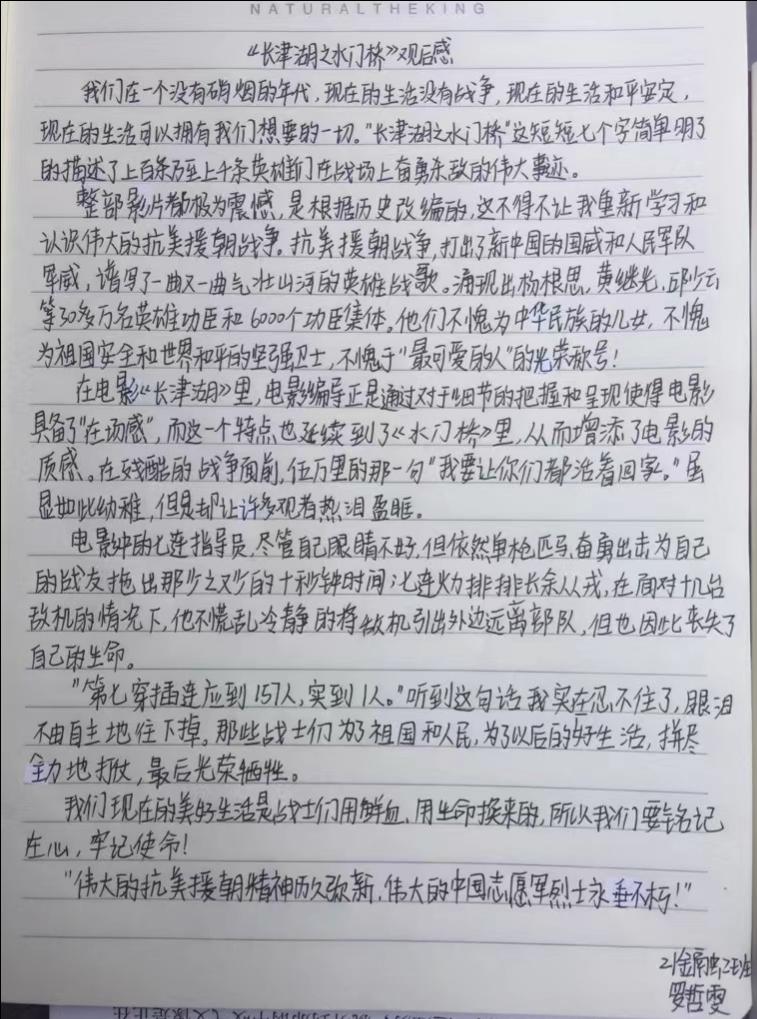 NATURALTHEKING
《长津湖之水门桥》观后感
我们在一个没有硝烟的年代，现在的生活没有战争，现在的生活和平安定，
现在的生活可以拥有我们想要的一切。"长津湖之水门桥"这短短七个字简单明了
的描述了上百条乃至上千条英雄们在战场上奋勇杀敌的伟大事迹。
整部影片都极为震憾，是根据历史改编的，这不得不让我重新学习和
认识伟大的抗美援朝战争。抗美援朝战争，打出了新中国的国威和人民军队
军威，谱写了一曲又一曲气壮山河的英雄战歌。涌现出杨根思，黄继光，邱少云
等30多万名英雄功臣和6000个功臣集体。他们不愧为中华民族的儿女，不愧
为祖国安全和世界和平的坚强卫士，不愧于"最可爱的人"的光荣称号！
在电影《长津湖》里，电影编导正是通过对于细节的把握和呈现使得电影
具备了"在场感"，而这一个特点也延续到了《水门桥》里，从而增添了电影的
质感。在残酷的战争面前，伍万里的那一句"我要让你们都活着回家。"虽
显如此幼稚，但是却让许多观者热泪盈眶。
电影中的七连指导员，尽管自己眼睛不好，但依然单枪匹马，奋勇出击为自己
的战友拖出那少之又少的十秒钟时间；七连火力排排长余从戎，在面对十几台
敌机的情况下，他不慌乱冷静的将敌机引出外边远离部队，但也因此丧失了
自己的生命。
"第七穿插连应到157人，实到1人。"听到这句话我实在忍不住了，眼泪
不由自主地往下掉。那些战士们为了祖国和人民，为了以后的好生活，拼尽
全力地打仗，最后光荣牺牲。
我们现在的美好生活是战士们用鲜血、用生命换来的，所以我们要铭记
在心，牢记使命！
"伟大的抗美援朝精神历久弥新，伟大的中国志愿军烈士永垂不朽！"
21金融2班
罗哲雯